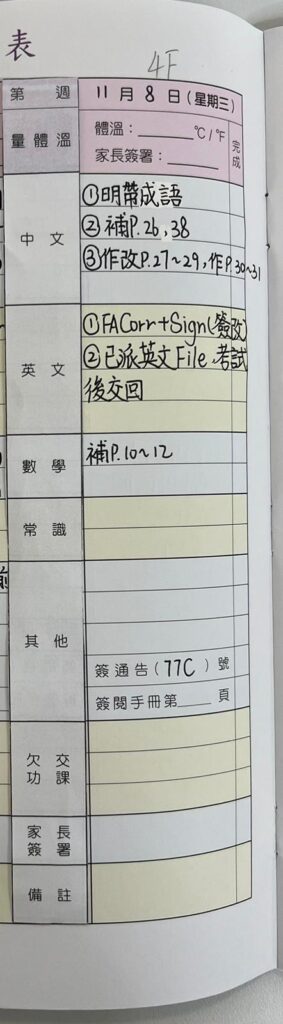 表
4F
第 週 11月8日(星期三)
量體溫 體溫:______°C/°F 完成
家長簽署:______
中文 ①明帶成語
②補P.26,38
③作改P.27~29,作P.30~31
英文 ①FACorr+Sign(簽改)
②已派英文File,考試
後交回
數學 補P.10~12
常識
其他
簽通告(77C)號
簽閱手冊第____頁
欠交功課
家長簽署
備註